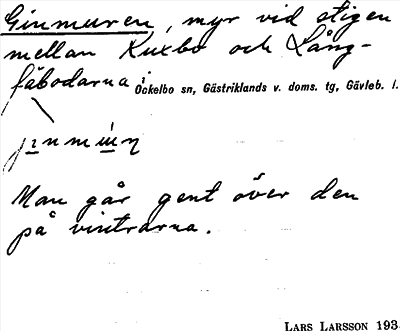 Ginmuren, myr vid stigen
mellan Kuxbo och Lång-
fäbodarna.
Ockelbo sn, Gästriklands v. doms. tg, Gävleb. l.
Man går gent över den
på vintrarna.
LARS LARSSON 193